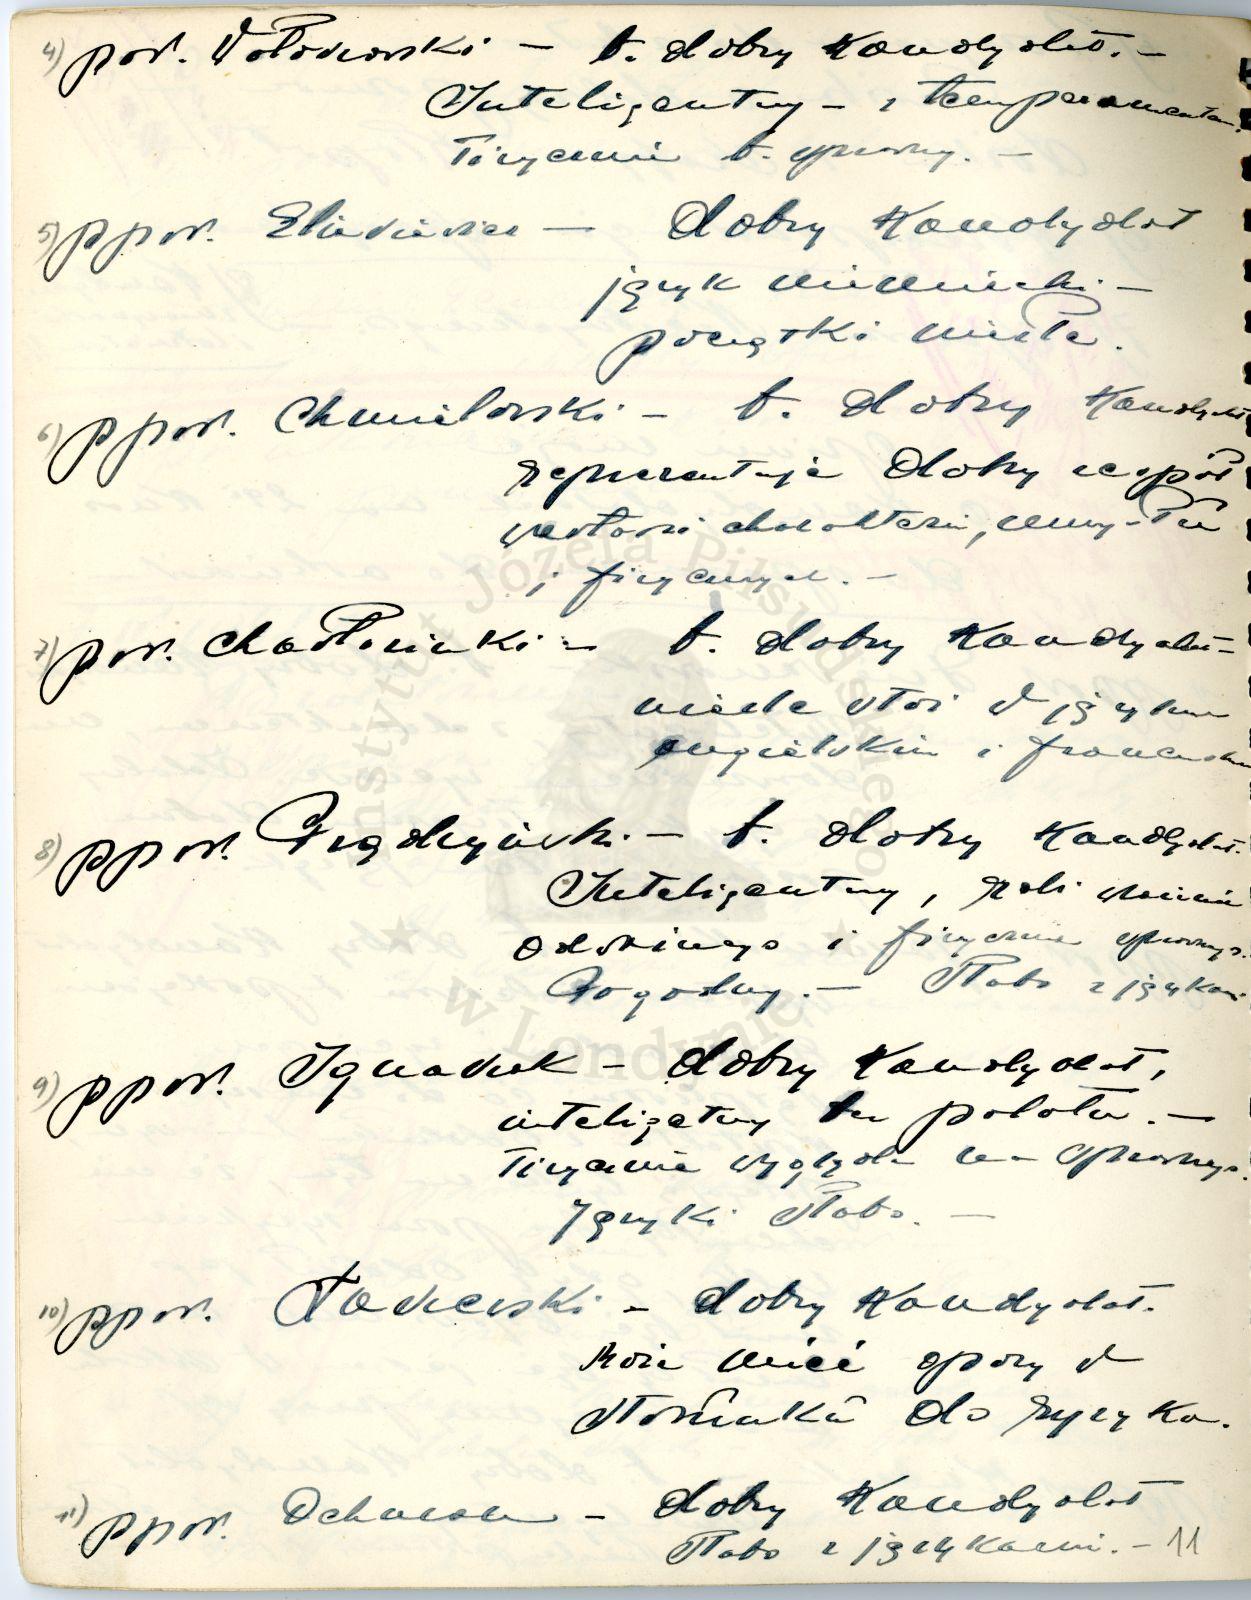 4) por. – b. dobry kandydat. –
Inteligentny – z temperamentem.
Fizycznie b. sprawny. –
5) ppor. – dobry kandydat
język niemiecki –
początki niesłe.
6) ppor. Chmielowski – b. dobry kandydat
reprezentuje dobry zespół
wartości charakteru, umysłu
i fizycznych. –
7) por. – b. dobry kandydat –
nieźle stoi w języku
angielskim i francuskim
8) ppor. Prądzyński – b. dobry kandydat.
Inteligentny, robi wrażenie
odważnego i fizycznie sprawnego.
Pogodny. – Słabo z językami
9) ppor. Ignaczak – dobry kandydat,
inteligetny bez polotu. –
Fizycznie wygląda na sprawnego.
Języki słabo. –
10) ppor. – dobry kandydat.
Może mieć opory w
stosunku do ryzyka.
11) ppor. Ochman – dobry kandydat
Słabo z językami. – 11
Instytut Józefa Piłsudskiego
w Londynie